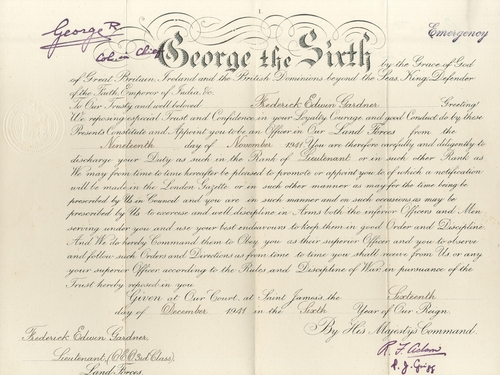 1
George R
Col in Chief
Emergency
George the Sixth by the Grace of God
of Great Britain, Ireland and the British Dominions beyond the Seas, King, Defender
of the Faith, Emperor of India, &c.
To Our Trusty and well beloved Frederick Edwin Gardner, Greeting!
We, reposing especial Trust and Confidence in your Loyalty, Courage, and good Conduct, do by these
Presents Constitute and Appoint you to be an Officer in Our Land Forces from the
Nineteenth day of November 1941. You are therefore carefully and diligently to
discharge your Duty as such in the Rank of Lieutenant or in such other Rank as
We may from time to time hereafter be pleased to promote or appoint you to, of which a notification
will be made in the London Gazette, or in such other manner as may for the time being be
prescribed by Us in Council, and you are in such manner and on such occasions as may be
prescribed by Us to exercise and well discipline in Arms both the inferior Officers and Men
serving under you and use your best endeavours to keep them in good Order and Discipline.
And We do hereby Command them to Obey you as their superior Officer and you to observe
and follow such Orders and Directions as from time to time you shall receive from Us, or any
your superior Officer, according to the Rules and Discipline of War, in pursuance of the
Trust hereby reposed in you.
Given at Our Court, at Saint James's, the Sixteenth
day of December 1941 in the Sixth Year of Our Reign.
By His Majesty's Command.
Frederick Edwin Gardner,
Lieutenant, (O.E.O. 3rd Class),
Land Forces.
R. F. Adam